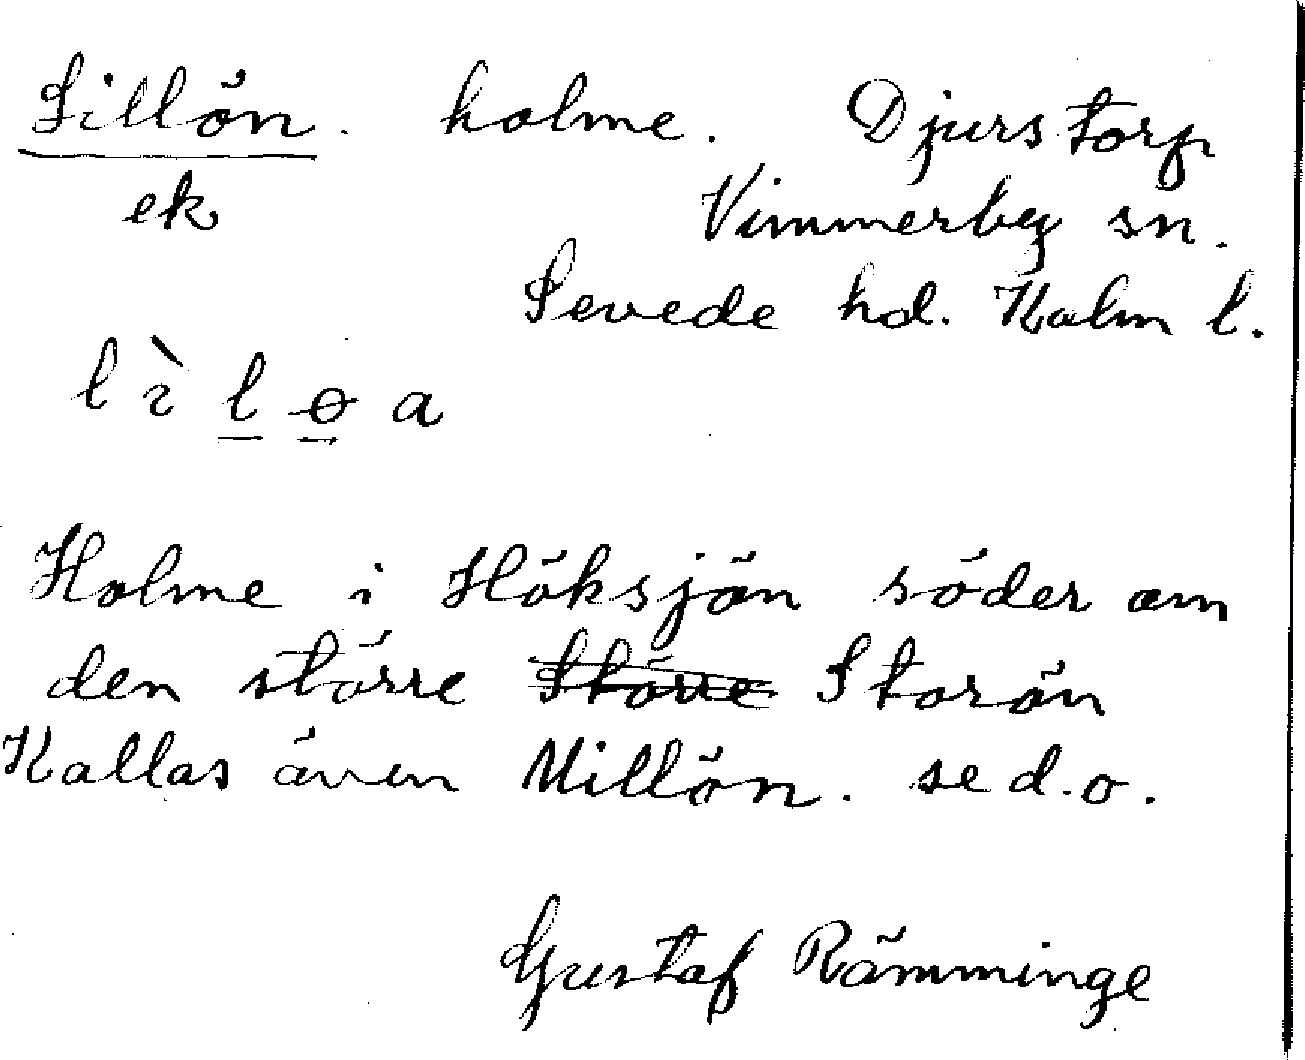 Lillön. holme. Djurstorp
ek Vimmerby sn.
Sevede hd. Kalm l.
l ì l ø a
Holme i Höksjön söder om
den större Större Storön
Kallas även Millön. se d.o.
Gustaf Rämminge